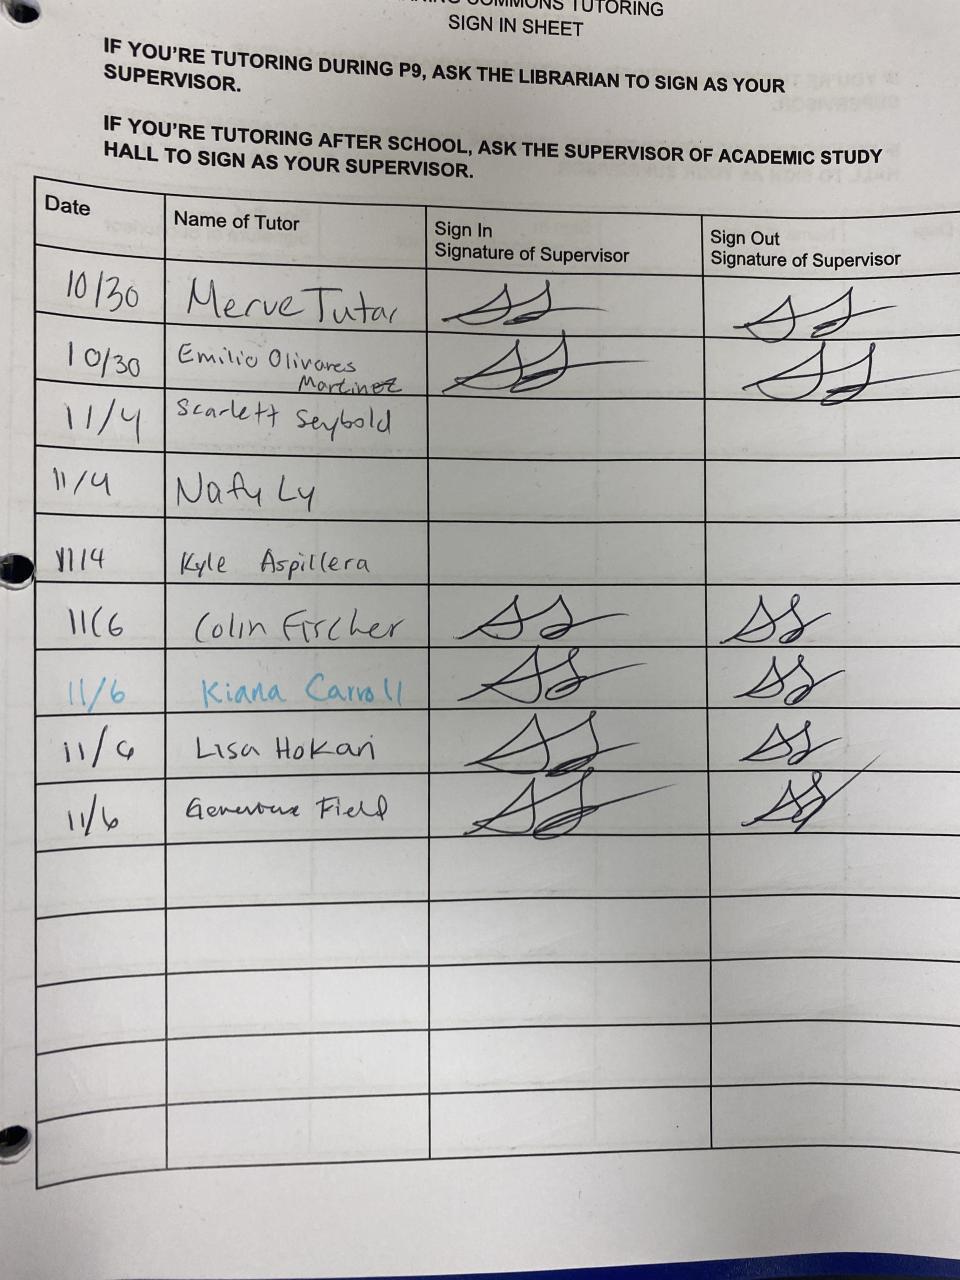 COMMONS TUTORING
SIGN IN SHEET
IF YOU'RE TUTORING DURING P9, ASK THE LIBRARIAN TO SIGN AS YOUR
SUPERVISOR.
IF YOU'RE TUTORING AFTER SCHOOL, ASK THE SUPERVISOR OF ACADEMIC STUDY
HALL TO SIGN AS YOUR SUPERVISOR.
Date Name of Tutor Sign In Sign Out
Signature of Supervisor Signature of Supervisor
10/30 Merve Tutar
10/30 Emilio Olivares
Martinez
11/4 Scarlett Seybold
11/4 Nafy Ly
11/4 Kyle Aspillera
11/6 Colin Fischer
11/6 Kiana Carroll
11/6 Lisa Hokari
11/6 Field